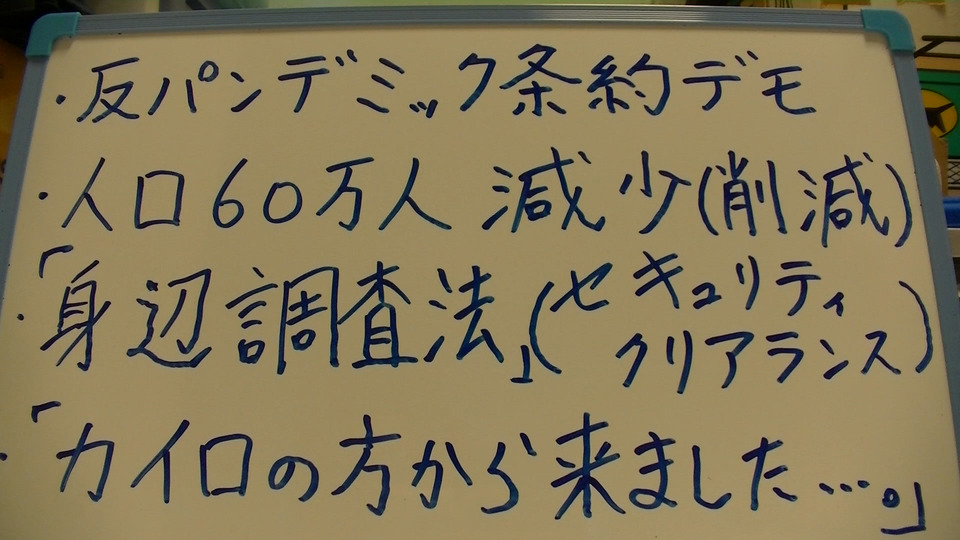 ・反パンデミック条約デモ
・人口60万人 減少(削減)
・「身辺調査法」(セキュリティ
クリアランス)
・「カイロの方から来ました…。」